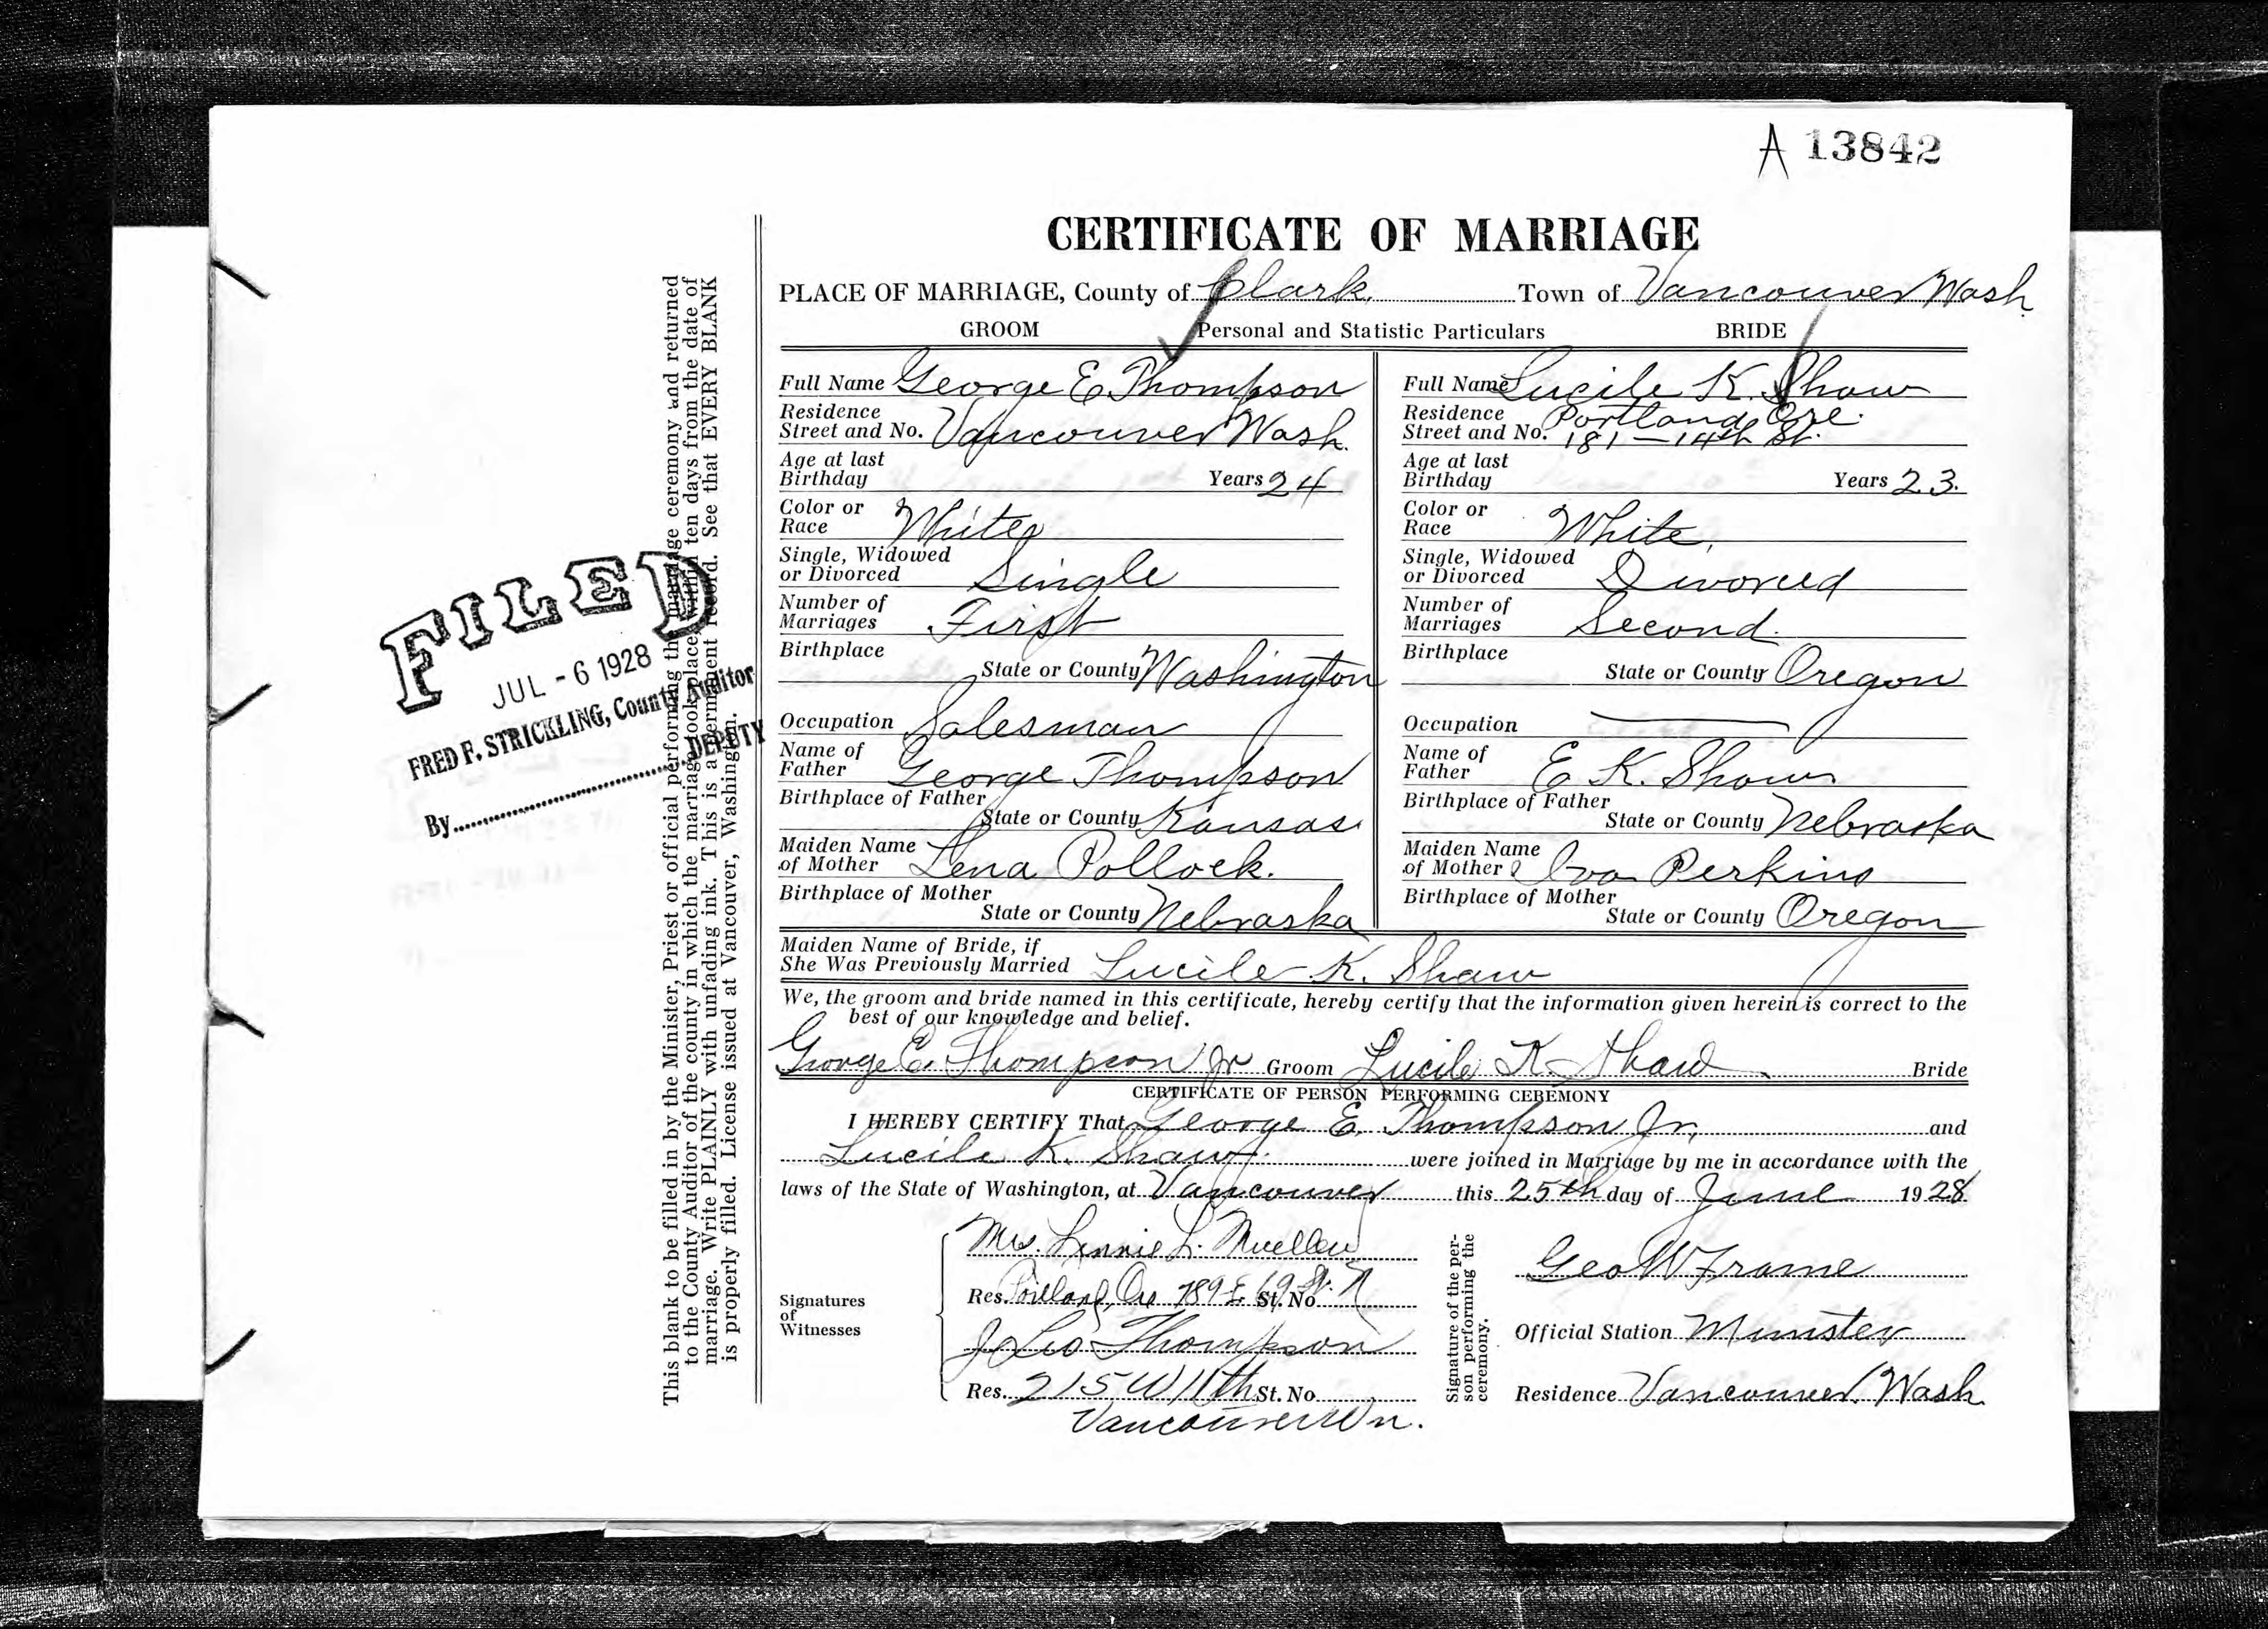 A 13842
CERTIFICATE OF MARRIAGE
PLACE OF MARRIAGE, County of Clark Town of Vancouver Wash
GROOM Personal and Statistic Particulars BRIDE
Full Name George E Thompson
Residence
Street and No. Vancouver Wash.
Age at last
Birthday Years 24
Color or
Race White
Single, Widowed
or Divorced Single
Number of
Marriages First
Birthplace
State or County Washington
Occupation Salesman
Name of
Father George Thompson
Birthplace of Father
State or County Kansas
Maiden Name
of Mother Lena Pollock.
Birthplace of Mother
State or County Nebraska
Full Name Lucile K. Shaw
Residence Portland Ore.
Street and No. 181 - 14th St.
Age at last
Birthday Years 23.
Color or
Race White,
Single, Widowed
or Divorced Divorced
Number of
Marriages Second.
Birthplace
State or County Oregon
Occupation
Name of
Father E K. Shaw
Birthplace of Father
State or County Nebraska
Maiden Name
of Mother Iva Perkins
Birthplace of Mother
State or County Oregon
Maiden Name of Bride, if
She Was Previously Married Lucile K. Shaw
We, the groom and bride named in this certificate, hereby certify that the information given herein is correct to the
best of our knowledge and belief.
George E. Thompson Jr Groom Lucile K Shaw Bride
CERTIFICATE OF PERSON PERFORMING CEREMONY
I HEREBY CERTIFY That George E. Thompson Jr. and
Lucile K. Shaw were joined in Marriage by me in accordance with the
laws of the State of Washington, at Vancouver this 25th day of June 1928
Signatures
of
Witnesses
Mrs. Linnie L. Mueller
Res. Portland, Ore 789 E 69 St. No. N
J Leo Thompson
Res. 215 W 11th St. No.
Vancouver Wn.
Signature of the per-
son performing the
ceremony.
Geo W Frame
Official Station Minister
Residence Vancouver Wash
This blank to be filled in by the Minister, Priest or official performing the marriage ceremony and returned
to the County Auditor of the county in which the marriage took place within ten days from the date of
marriage. Write PLAINLY with unfading ink. This is a permanent record. See that EVERY BLANK
is properly filled. License issued at Vancouver, Washington.
FILED
JUL - 6 1928
FRED F. STRICKLING, County Auditor
By DEPUTY